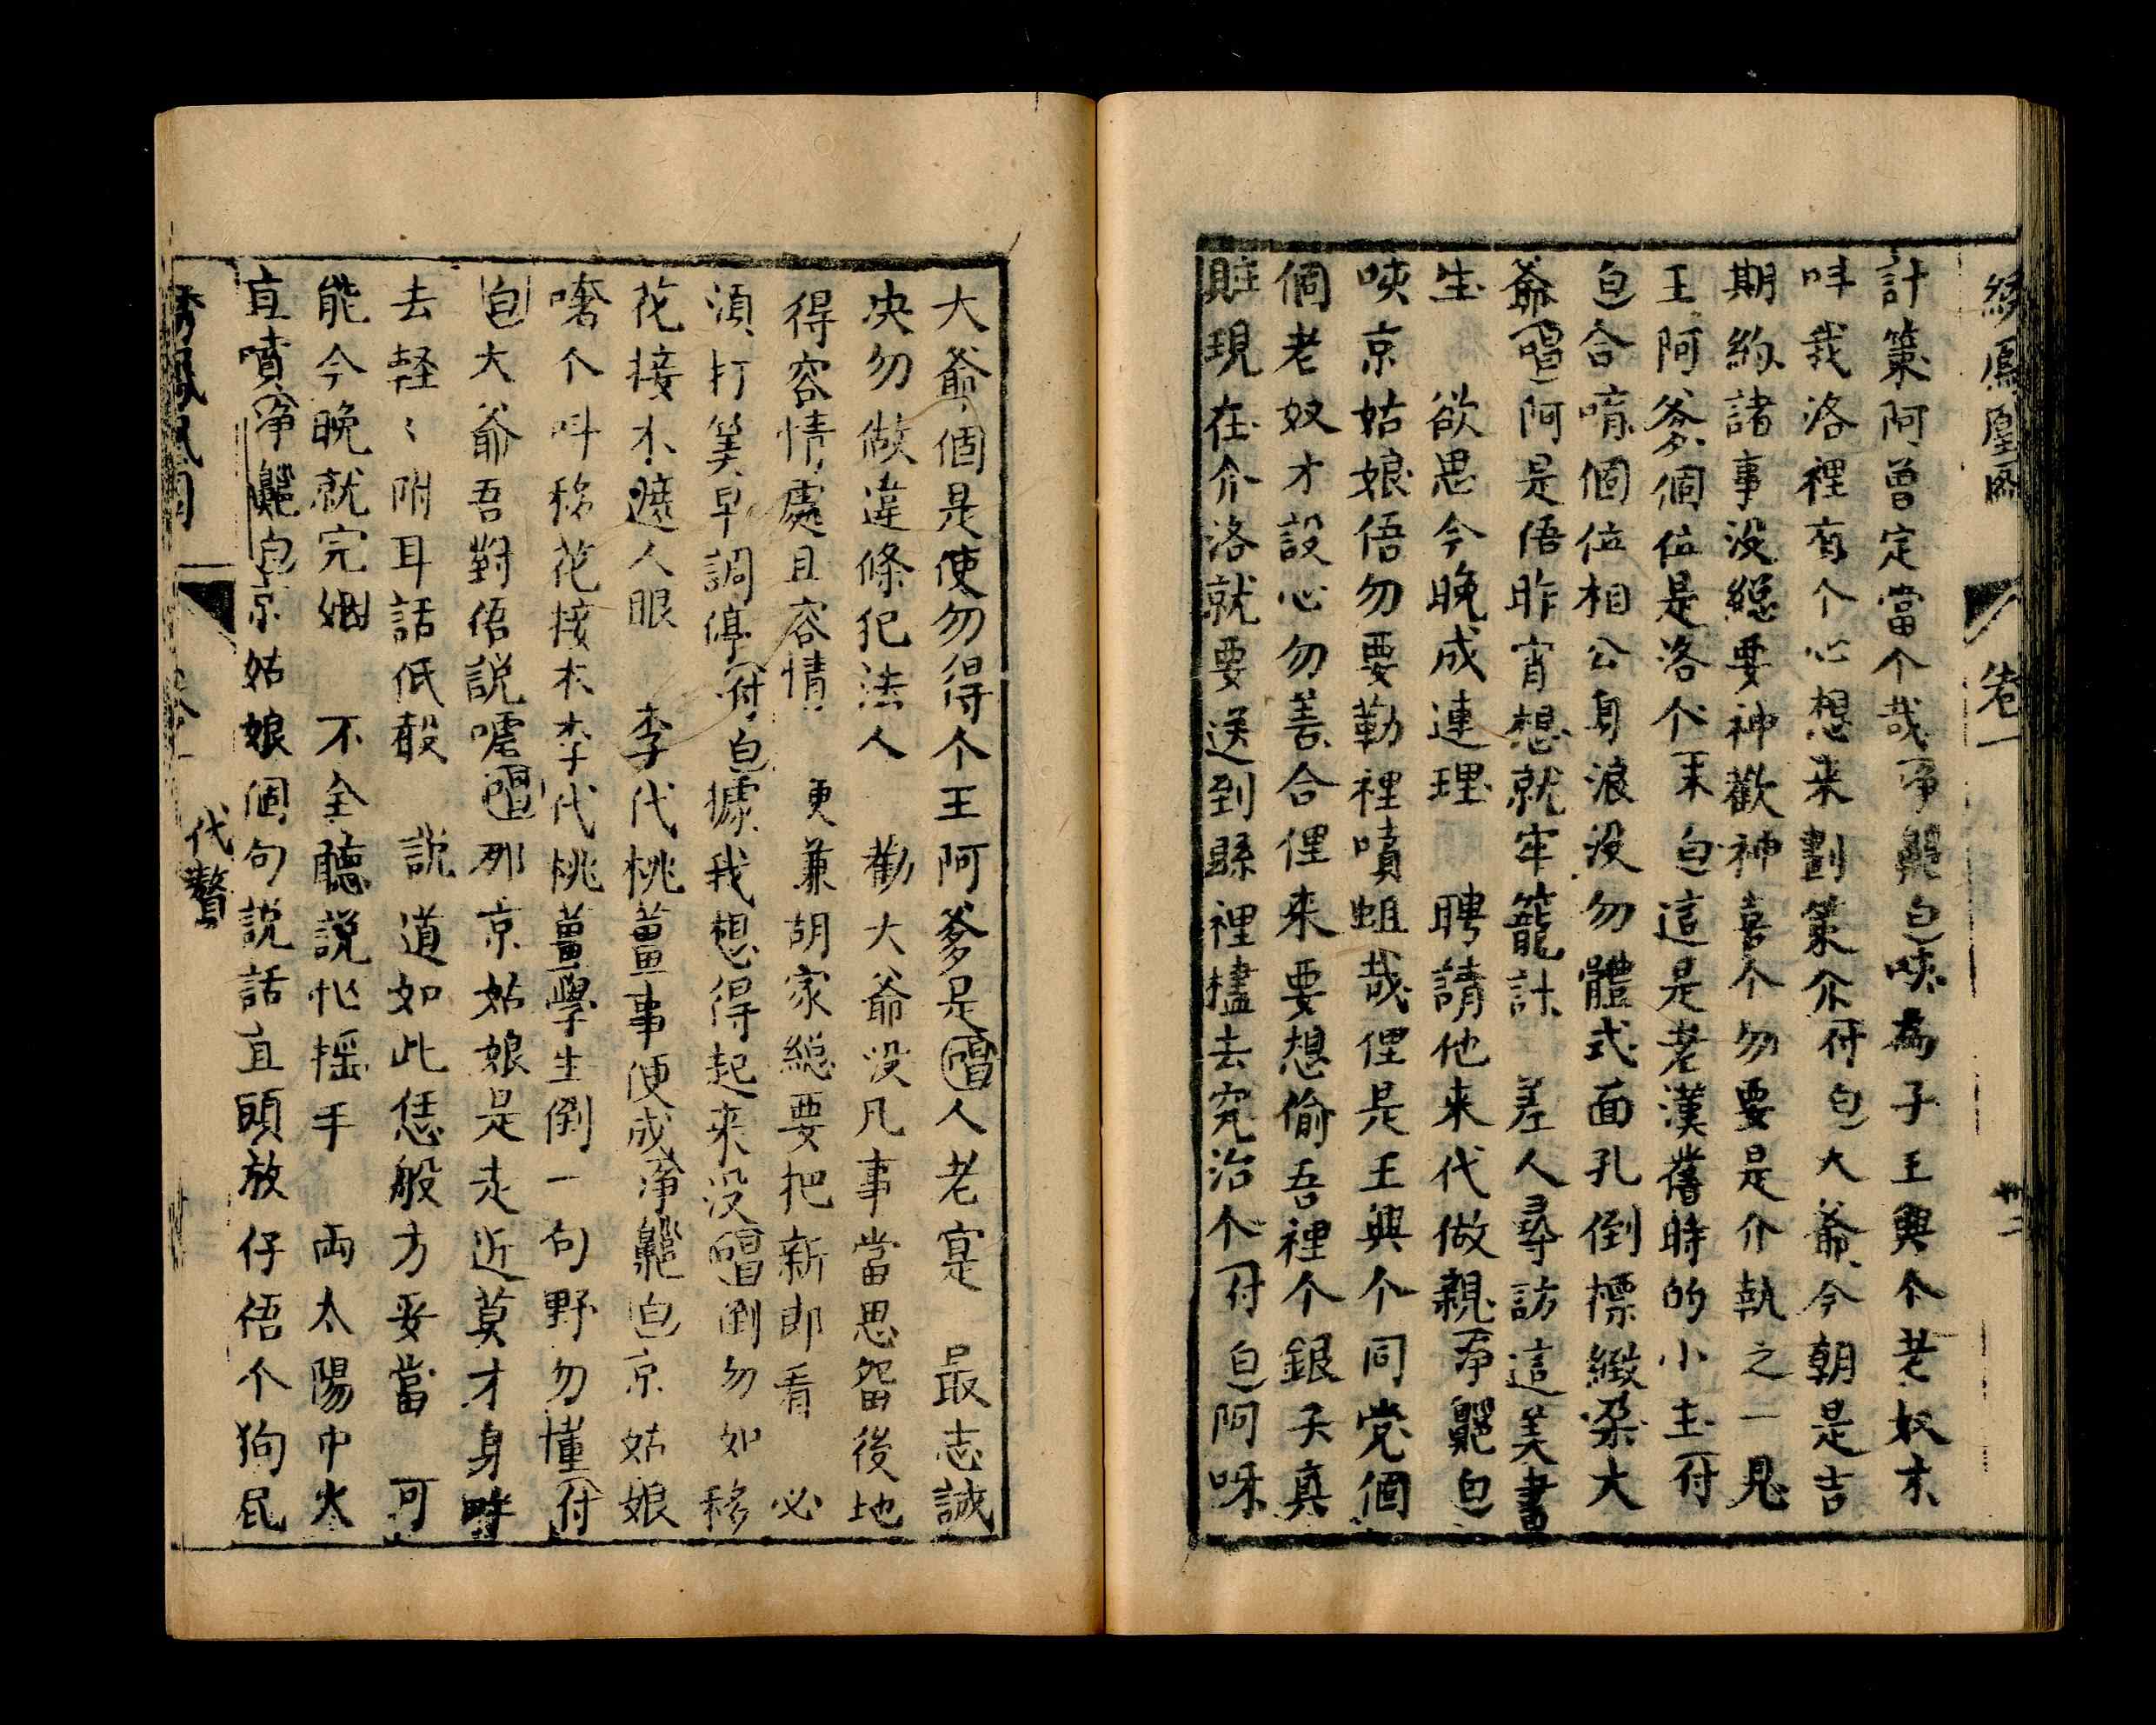 繡鳳凰圖 卷一
計策阿曾定當个哉淨白咦為子王興个老奴才
呌我洛裡有个心想来劃策介付白大爺今朝是吉
期約諸事没總要神歡神喜个勿要是介執之一見
王阿爹個位是洛个末白這是老漢舊時的小主付
白合唷個位相公身浪没勿體式面孔倒標緻朶大
爺唱阿是俉昨宵想就牢籠計 差人尋訪這美書
生 欲思今晚成連理 聘請他来代做親淨白
咦京姑娘俉勿要勒裡噴蛆哉俚是王興个同党個
個老奴才設心勿善合俚来要想偷吾裡个銀子真
賍現在介洛就要送到縣裡𣖕去究治个付白阿呀
大爺個是使勿得个王阿爹是唱人老寔 最志誠
决勿做違條犯法人 勸大爺没凡事當思留後地
得容情處且容情 更兼胡家總要把新郎看 必
須打筭早調停付白據我想得起来没唱倒勿如移
花接木遮人眼 李代桃薑事便成淨白京姑娘
啫个呌移花接木李代桃薑學生倒一句野勿懂付
白大爺吾對俉説嘘唱那京姑娘是走近莫才身時
去軽〻附耳話低聲 説道如此恁般方妥當 可
能今晚就完姻 不全聽説忙摇手 両太陽中火
直噴淨白京姑娘個句説話直頭放仔俉个狗屁
鳳凰圖 卷一 代贅